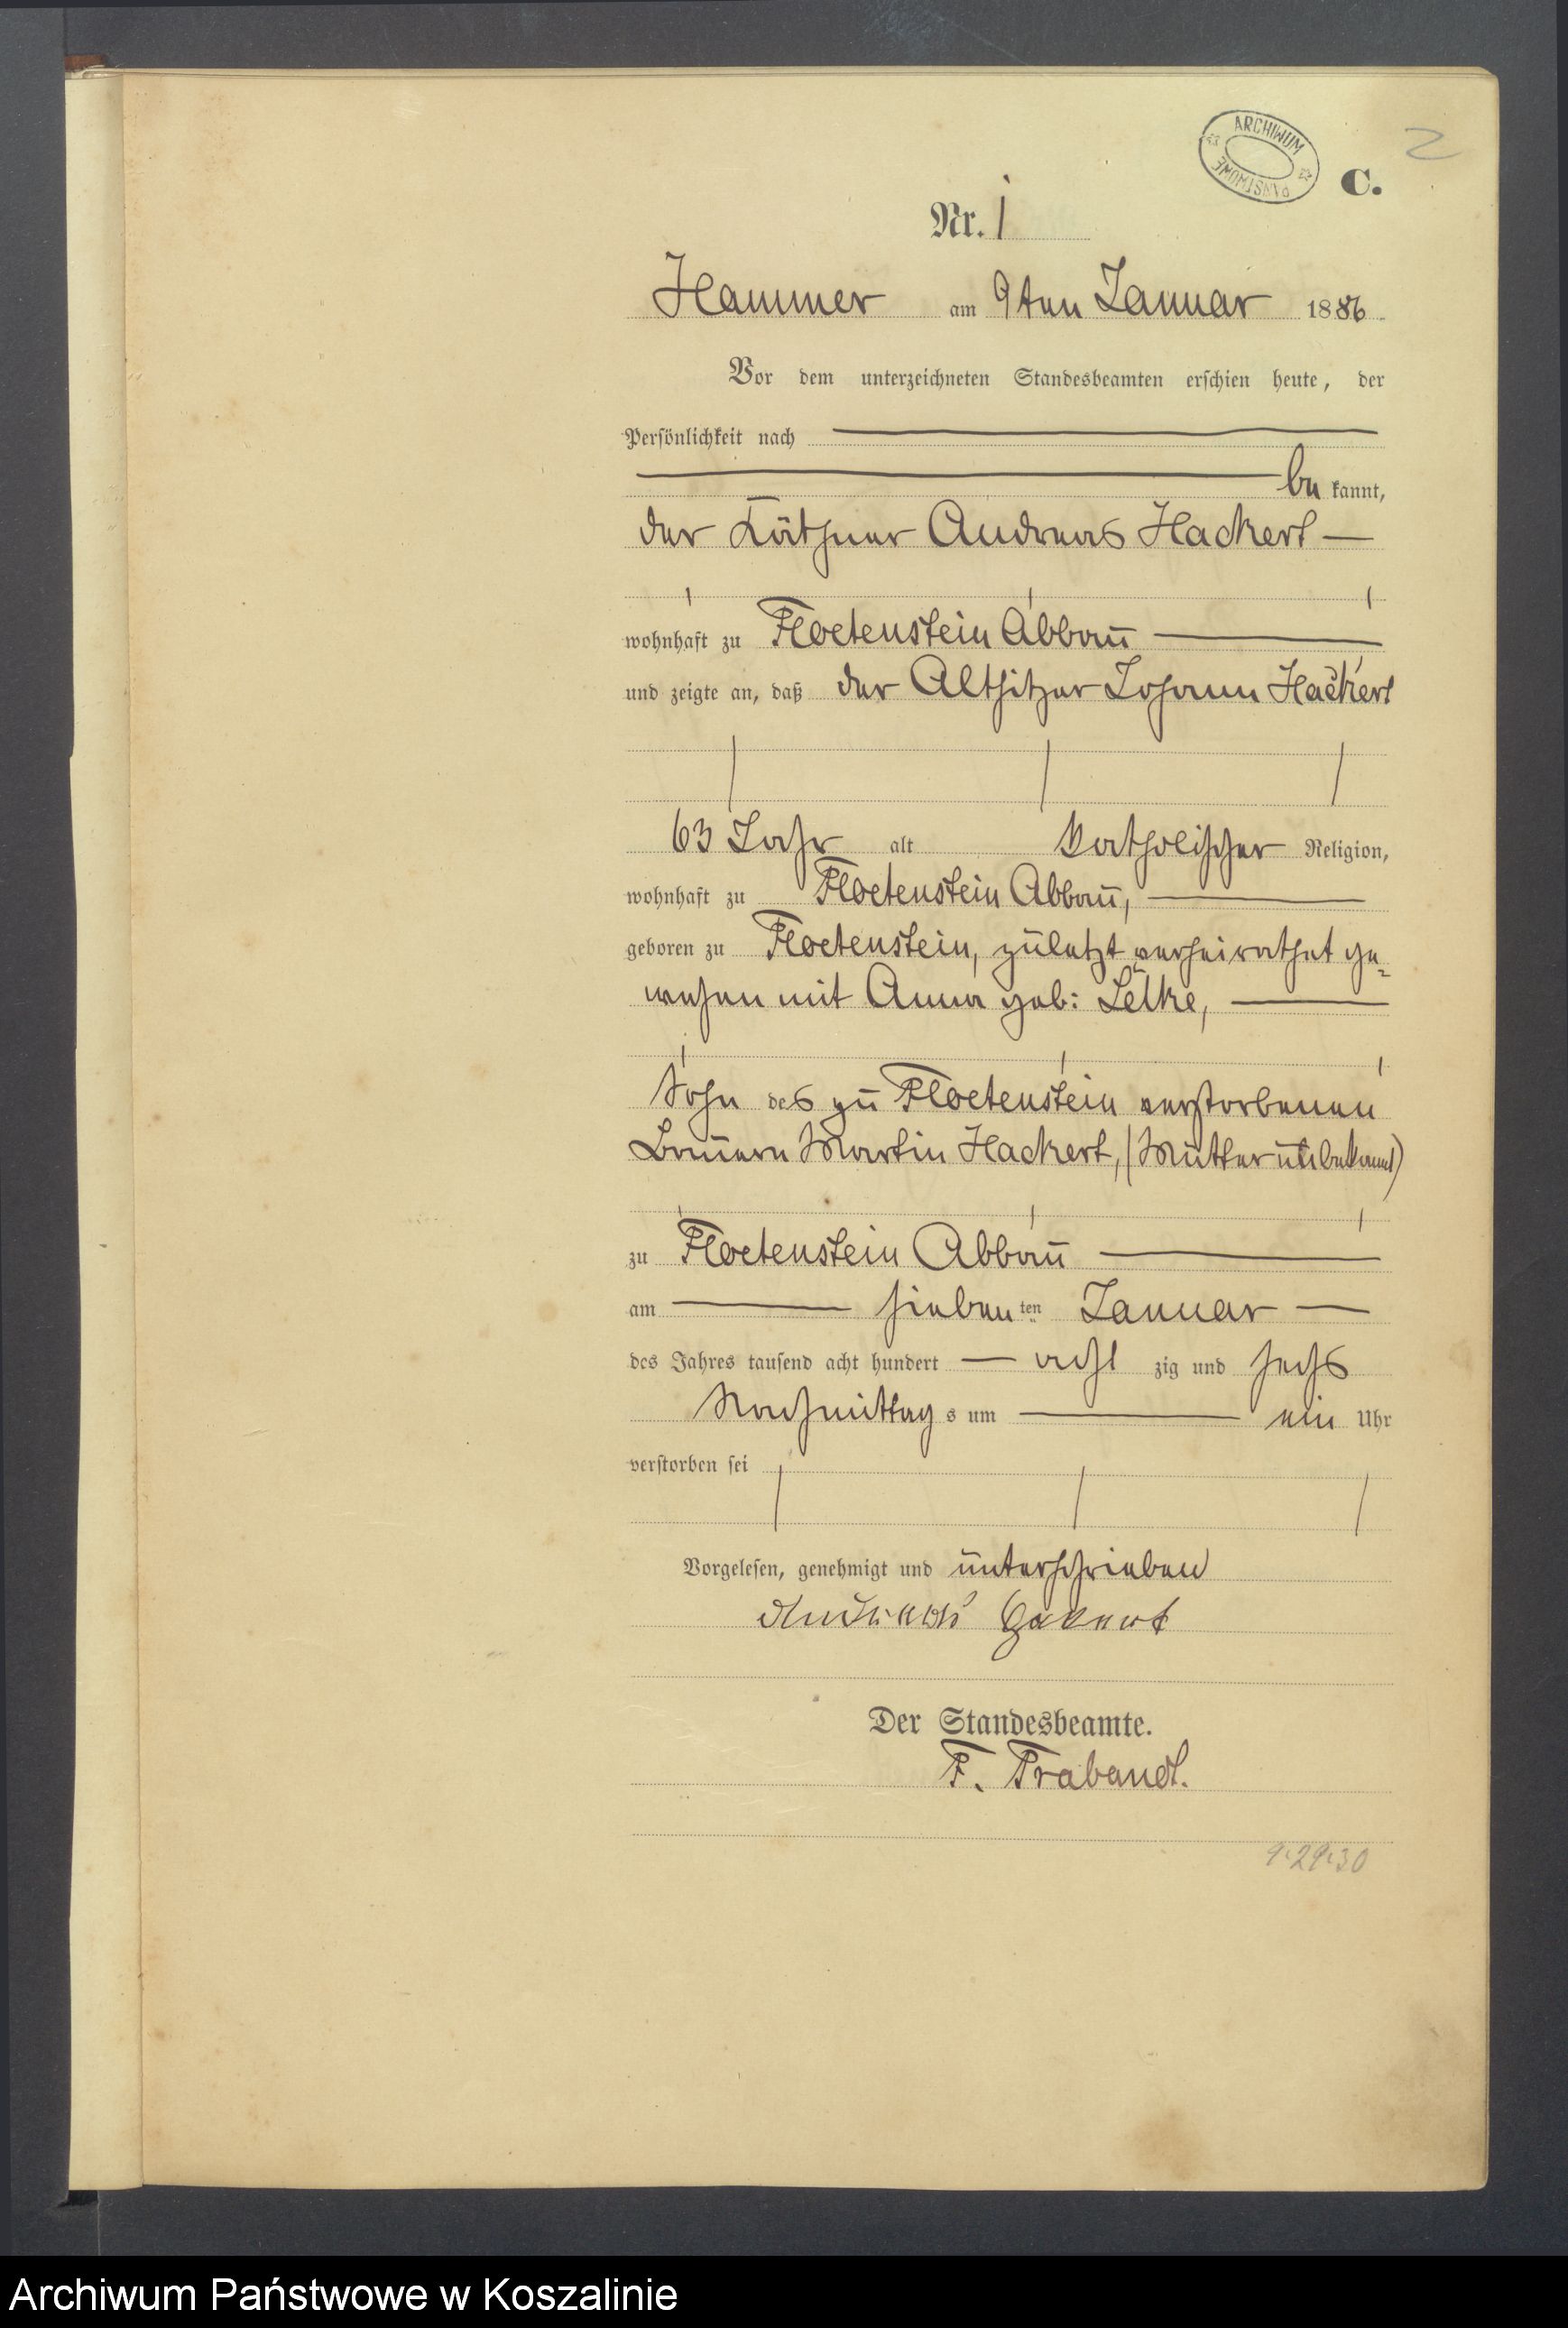 ARCHIWUM PAŃSTWOWE
2
C.
Nr. 1
Hammer am 9ten Januar 1886
Vor dem unterzeichneten Standesbeamten erschien heute, der
Persönlichkeit nach
be kannt,
der Käthner Andreas Hackert
wohnhaft zu Floetenstein Abbau
und zeigte an, daß der Altsitzer Johann Hackert
63 Jahr alt katholischer Religion,
wohnhaft zu Floetenstein Abbau,
geboren zu Floetenstein, zuletzt verheirathet ge-
wesen mit Anna geb: Lelke,
Sohn des zu Floetenstein verstorbenen
Bauern Martin Hackert, (Mutter unbekannt)
zu Floetenstein Abbau
am sieben ten Januar
des Jahres tausend acht hundert acht zig und sechs
Nachmittag s um ein Uhr
verstorben sei
Vorgelesen, genehmigt und unterschrieben
Andreas Hakert
Der Standesbeamte.
F. Trabandt.
9.29.30
Archiwum Państwowe w Koszalinie